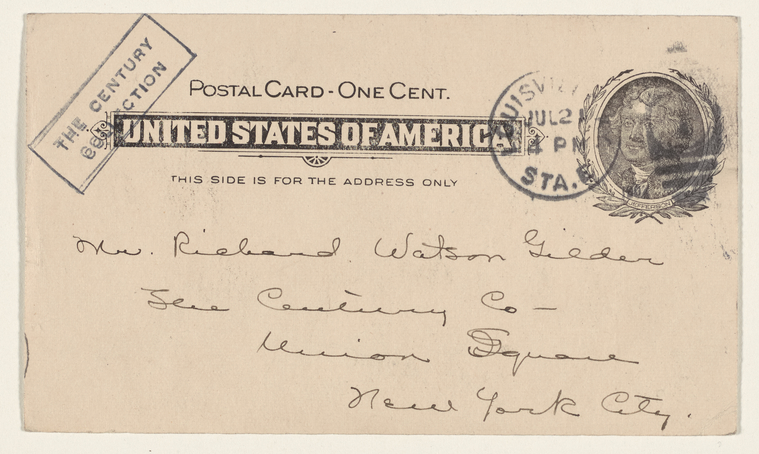 THE CENTURY
COLLECTION
POSTAL CARD - ONE CENT.
UNITED STATES OF AMERICA
THIS SIDE IS FOR THE ADDRESS ONLY
LOUISVILLE
JUL 2
4 PM
STA. E
JEFFERSON
Mr. Richard Watson Gilder
The Century Co —
Union Square
New York City.